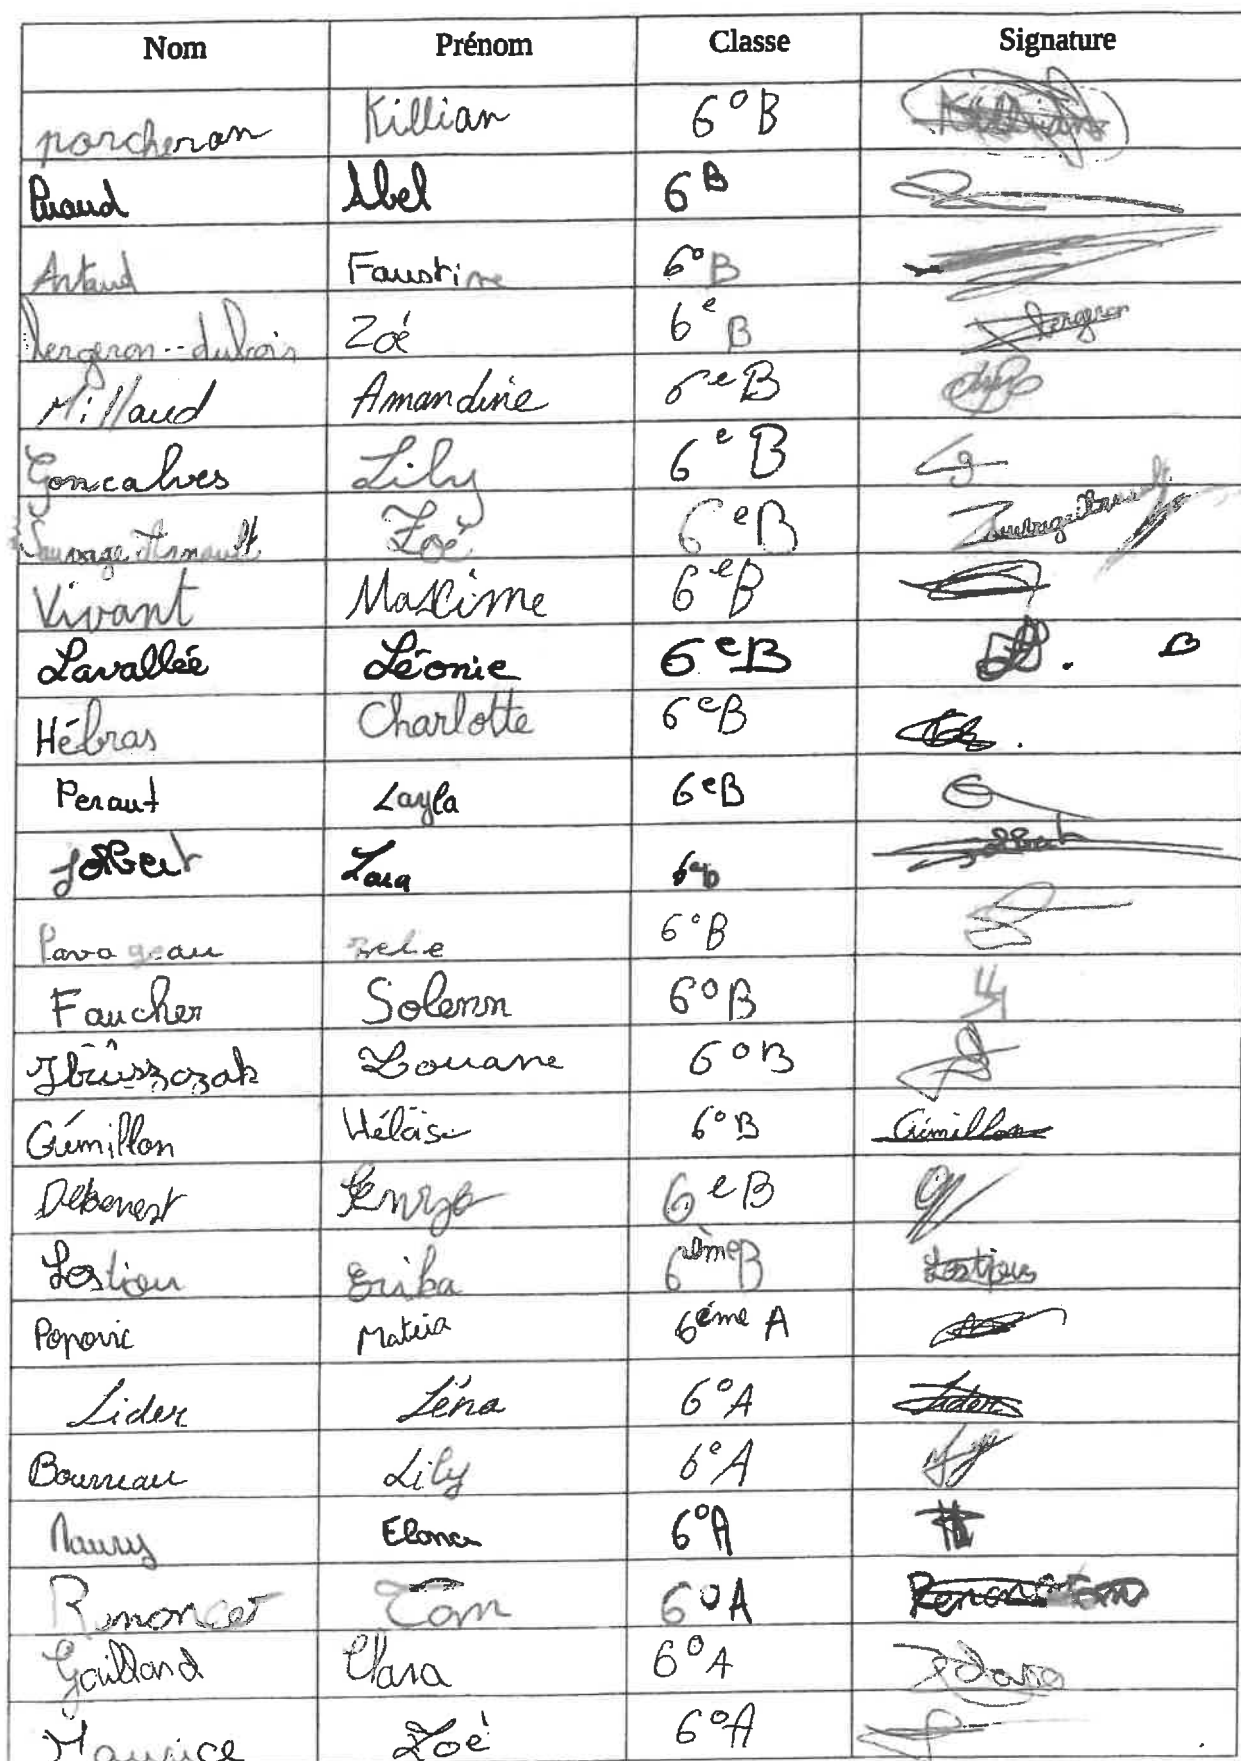 Nom Prénom Classe Signature
porcheron Killian 6°B Killian
Puaud Abel 6B
Artaud Faustine 6°B
bergeron--dubois Zoé 6e B Bergeron
Millaud Amandine 6eB
Goncalves Lily 6eB
Sauvage Arnault Zoé 6eB
Vivant Maxime 6eB
Lavallée Léonie 6eB B
Hébras Charlotte 6eB
Peraut Layla 6eB
Jolbert Lara Jolbert
Pavageau 6°B
Faucher Solenn 6°B
Louane 6°B
Grémillon Héloïse 6°B Grémillon
Debenest Kenzo 6eB
Lostion Erika 6ème B
Popovic Matéia 6ème A
Lider Léna 6°A Lider
Bourreau Lily 6°A
Maury 6°A
Renoncet Tom 6°A Renoncet Tom
Gaillard Clara 6°A Clara
Maurice Zoé 6°A